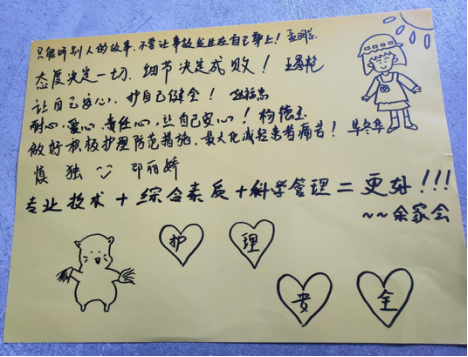 只能听别人的故事，不要让事故发生在自己身上！
态度决定一切，细节决定成败！
让自己安心，护自己健全！
耐心、爱心、责任心，让自己安心！杨德玉
做好积极护理防范措施，最大化减轻患者痛苦！
慎独 邵丽娇
专业技术+综合素质+科学管理=更好!!!
~~余家会
护 理
安 全